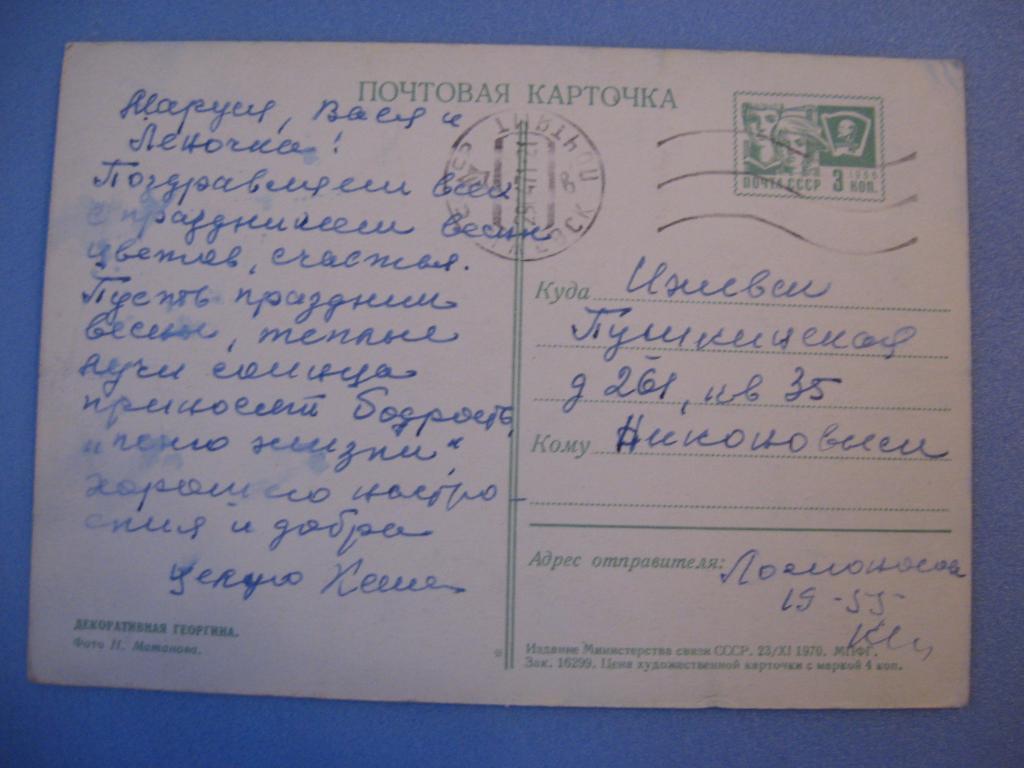 ПОЧТОВАЯ КАРТОЧКА
Маруся, Вася и
Леночка!
Поздравляем всех
с праздником весны
цветов, счастья.
Пусть праздник
весны, теплые
лучи солнца
приносят бодрость,
жизни",
хорошего настро-
ения и добра
ПОЧТА СССР 3 КОП.
1966
Куда Ижевск
Пушкинская
д 261, кв 35
Кому Никоновым
Адрес отправителя: Ломоносов
19-55
ДЕКОРАТИВНАЯ ГЕОРГИНА.
Фото Н. Матанова.
Издание Министерства связи СССР. 23/XI 1970. МПФГ.
Зак. 16299. Цена художественной карточки с маркой 4 коп.